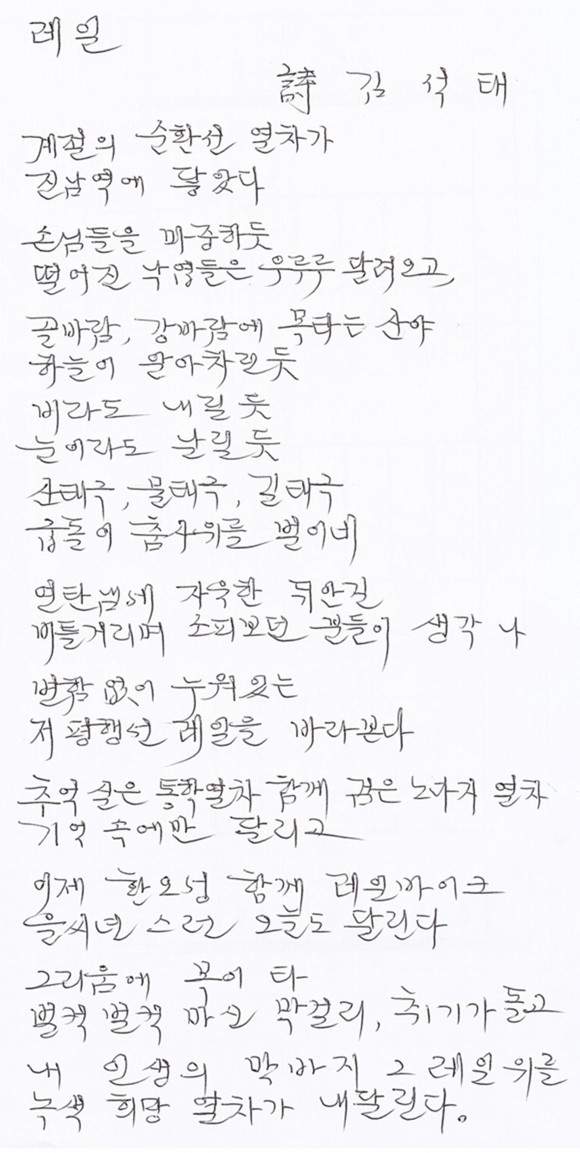 레일
詩 김석태
계절의 순환선 열차가
진남역에 닿았다
손님들을 마중하듯
떨어진 낙엽들은 우루루 달려오고,
골바람, 강바람에 목타는 산야
하늘이 알아차린 듯
비라도 내릴 듯
눈이라도 날릴 듯
산태극, 물태극, 길태극
굽돌이 춤사위를 벌이네
연탄냄새 자욱한 뒤안길
비틀거리며 소피보던 분들이 생각나
변함없이 누워있는
저 평행선 레일을 바라본다
추억 실은 통학열차 함께 꿈은 노다지 열차
기억 속에만 달리고
이제 환호성 함께 레일바이크
을씨년 스런 오늘도 달린다
그리움에 목이 타
벌컥 벌컥 마신 막걸리, 취기가 돌고
내 인생의 막바지 그 레일 위를
녹색 희망 열차가 내달린다.